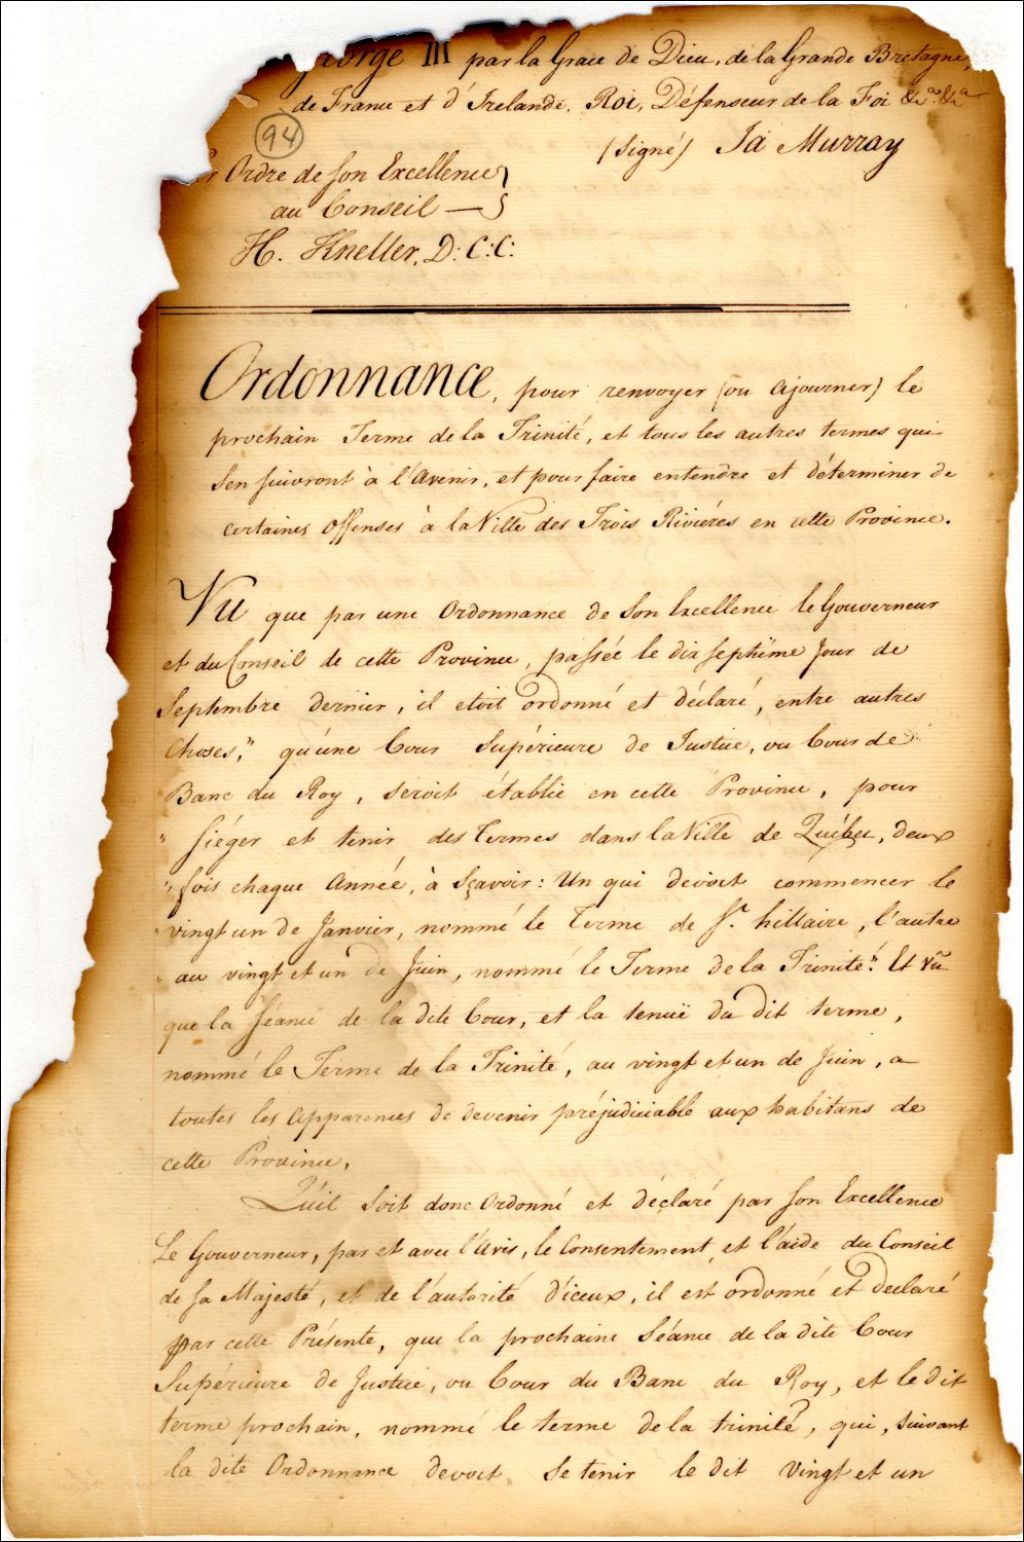 George III par la Grace de Dieu, de la Grande Bretagne,
de France et d'Irelande, Roi, Défenseur de la Foi &c.a &c.a
94
(Signé) Ja Murray
Ordre de son Excellence
au Conseil —
H. Kneller, D: C: C:
Ordonnance, pour renvoyer (ou ajourner) le
prochain Terme de la Trinité, et tous les autres termes qui
s'en suivront à l'Avenir, et pour faire entendre et déterminer de
certaines Offenses à la Ville des Trois Riviéres en cette Province.
Vu que par une Ordonnance de Son Excellence le Gouverneur
et du Conseil de cette Province, passée le dix septiéme Jour de
Septembre dernier, il etoit ordonné et déclaré, entre autres
Choses, " qu'une Cour Supérieure de Justice, ou Cour de
Banc du Roy, seroit établie en cette Province, pour
" siéger et tenir des Termes dans la Ville de Québec, deux
" fois chaque Année, à Sçavoir: Un qui devoit commencer le
vingt un de Janvier, nommé le Terme de St. hillaire, l'autre
" au vingt et un de Juin, nommé le Terme de la Trinité." Et vû
que la Séance de la dite Cour, et la tenuë du dit terme,
nommé le Terme de la Trinité, au vingt et un de Juin, a
toutes les Apparences de devenir préjudiciable aux habitans de
cette Province,
Qu'il soit donc Ordonné et déclaré par son Excellence
Le Gouverneur, par et avec l'Avis, le Consentement et l'aide du Conseil
de sa Majesté, et de l'autorité d'iceux, il est ordonné et declaré
par cette Présente, que la prochaine Séance de la dite Cour
Supérieure de Justice, ou Cour du Banc du Roy, et le dit
terme prochain, nommé le terme de la trinité, qui, suivant
la dite Ordonnance devoit se tenir le dit Vingt et un